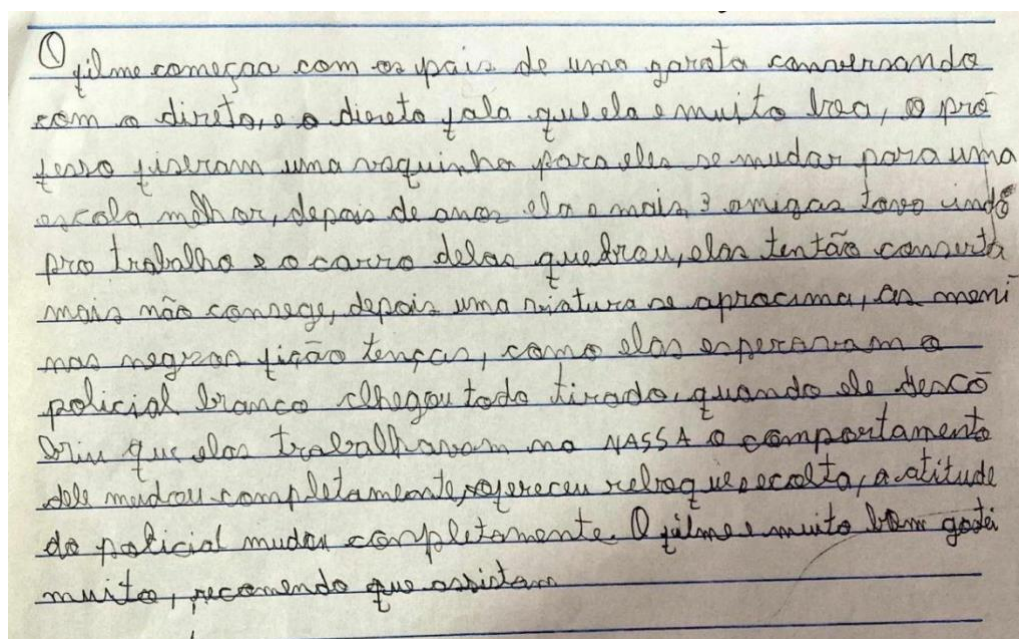 O filme começaa com os pais de uma garota conversando
com o direto, e o direto fala que ela e muito boa, o pro
fesso fiseram uma vaquinha para eles se mudar para uma
escola melhor, depois de anos ela e mais 3 amigas tavo indo
pro trabalho e o carro delas quebrou, elas tentão conserta
mais não consege, depois uma viatura se aprocima, as meni
nas negras fição tenças, como elas esperavam o
policial branco chegou todo tirado, quando ele desco
briu que elas trabalhavam na NASSA o comportamento
dele mudou completamente, ofereceu reboque e escolta, a atitude
do policial mudou completamente. O filme e muito bom gostei
muito, recomendo que assistam